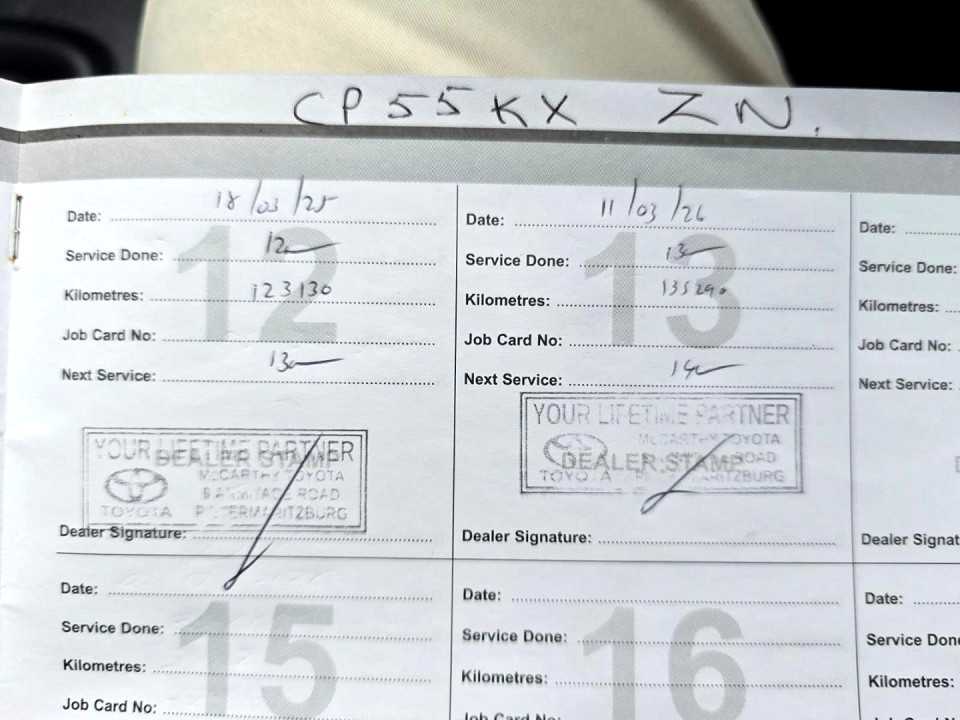 CP55KX ZN.
12
Date: 18/03/25
Service Done: 12
Kilometres: 123130
Job Card No:
Next Service: 13
YOUR LIFETIME PARTNER
DEALER STAMP
McCARTHY TOYOTA
ROAD
TOYOTA PIETERMARITZBURG
Dealer Signature:
13
Date: 11/03/26
Service Done: 13
Kilometres: 135290
Job Card No:
Next Service: 14
YOUR LIFETIME PARTNER
McCARTHY TOYOTA
DEALER STAMP
ROAD
TOYOTA PIETERMARITZBURG
Dealer Signature:
Date:
Service Done:
Kilometres:
Job Card No:
Next Service:
Dealer Signat
15
Date:
Service Done:
Kilometres:
Job Card No:
16
Date:
Service Done:
Kilometres:
Job Card No:
Date:
Service Don
Kilometres: